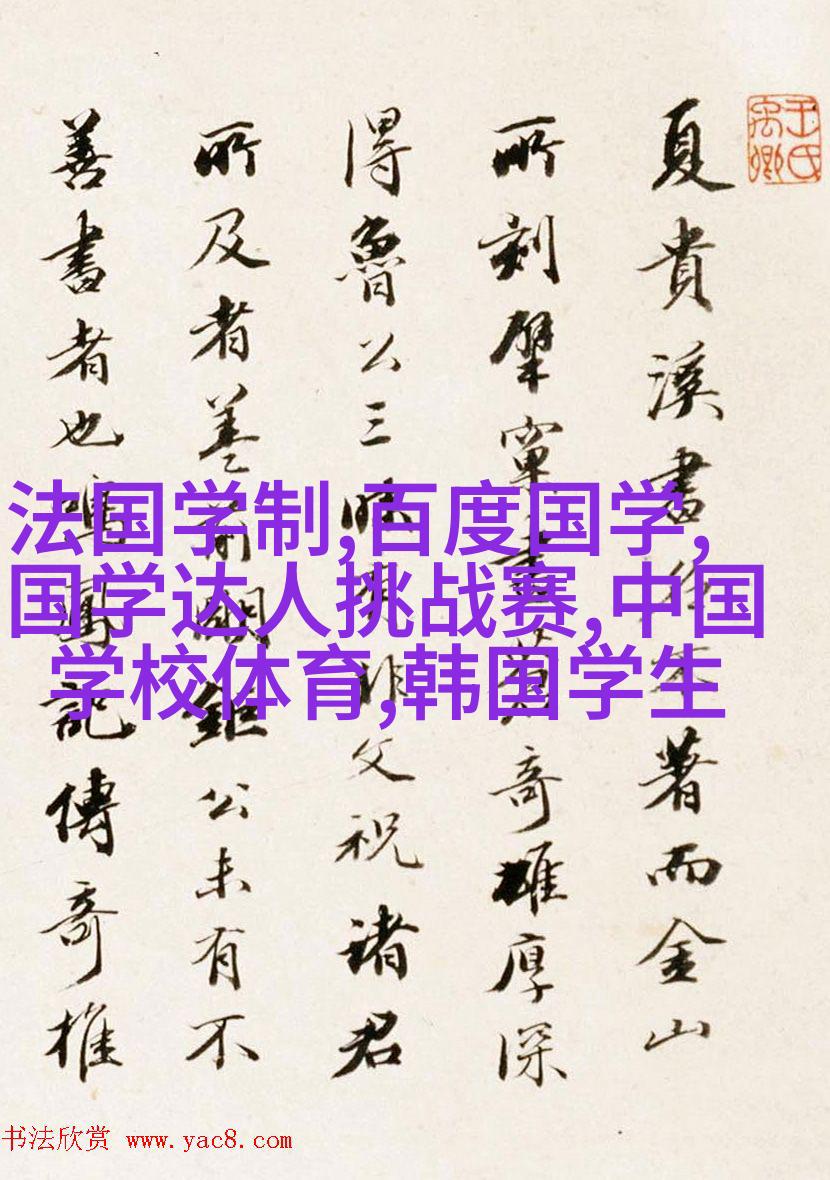 王氏
禹卿
夏貴溪書 著而金山
所刻擘窠書 奇雄厚深
得魯公三昧 非文祝諸君
所及者蓋前明鉅公未有不
善書者也鳴鳳記傳奇推
法国学制,百度国学,
国学达人挑战赛,中国
学校体育,韩国学生
书法欣赏 www.yac8.com